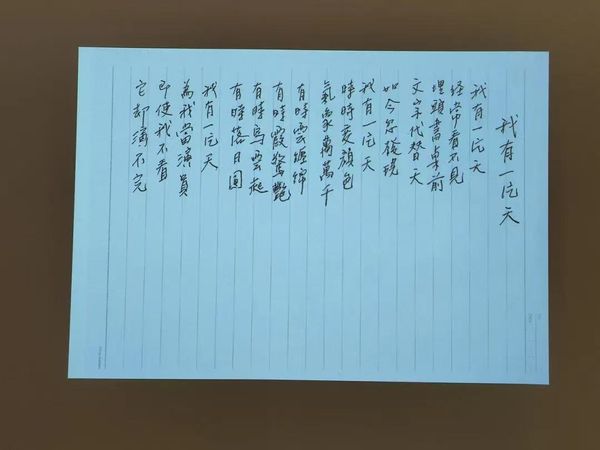 我有一片天
我有一片天
经常看不見
埋頭書桌前
文字代替天
如今忽發現
我有一片天
時時变顏色
氣象萬萬千
有時雲織錦
有時霞驚艷
有時烏雲起
有時落日圓
我有一片天
為我當演員
即使我不看
它却演不完